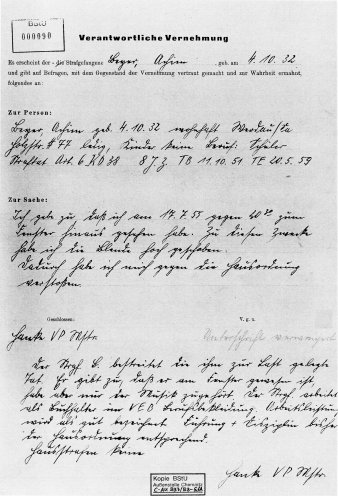 BStU
000090
Verantwortliche Vernehmung
Es erscheint der - die Strafgefangene Beyer, Achim geb. am 4.10.32
und gibt auf Befragen, mit dem Gegenstand der Vernehmung vertraut gemacht und zur Wahrheit ermahnt,
folgendes an:
Zur Person:
Beyer, Achim geb. 4.10.32 wohnhaft Werdau/Sa
Holzstr. 77 ledig, Kinder keine Beruf: Schüler
Straftat Art. 6 KD 38 8 J Z TB 11.10.51 TE 20.5.59
Zur Sache:
Ich gebe zu, daß ich am 17.7.55 gegen 20⁰⁰ zum
Fenster hinaus gesehen habe. Zu diesem Zwecke
habe ich die Blende hoch geschoben.
Dadurch habe ich mich gegen die Hausordnung
verstoßen.
Geschlossen: V. g. u.
VP Mstr. Unterschrift verweigert
Der Strgf. B. bestreitet die ihm zur Last gelegte
Tat. Er gibt zu, daß er am Fenster gewesen ist,
habe aber nur der Musik zugehört. Der Strgf. arbeitet
als Buchhalter im VEB Arbeitsleistung
wird als gut bezeichnet Führung + Disziplin bisher
der Hausordnung entsprechend.
Hausstrafen keine
VP Mstr.
Kopie BStU
Außenstelle Chemnitz